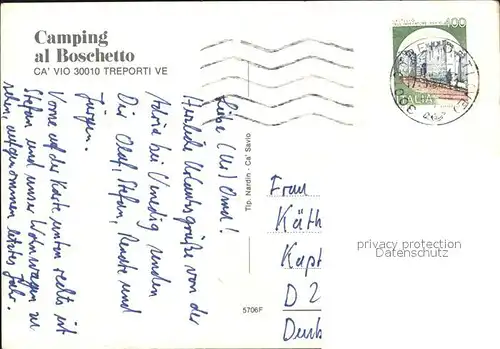 Camping
al Boschetto
CA' VIO 30010 TREPORTI VE
Liebe (Ur) Oma!
Herzliche Urlaubsgrüße von der
Adria bei Venedig senden
Dir Olaf, Stefan, Renate und
Jürgen.
Vorne auf der Karte unten rechts ist
Stefan und unser Wohnwagen zu
sehen, aufgenommen letztes Jahr.
Tip. Nardin - Ca' Savio
5706F
400
TREPORTI
ITALIA
Frau
Käth
Kapt
D 2
Deut
privacy protection
Datenschutz